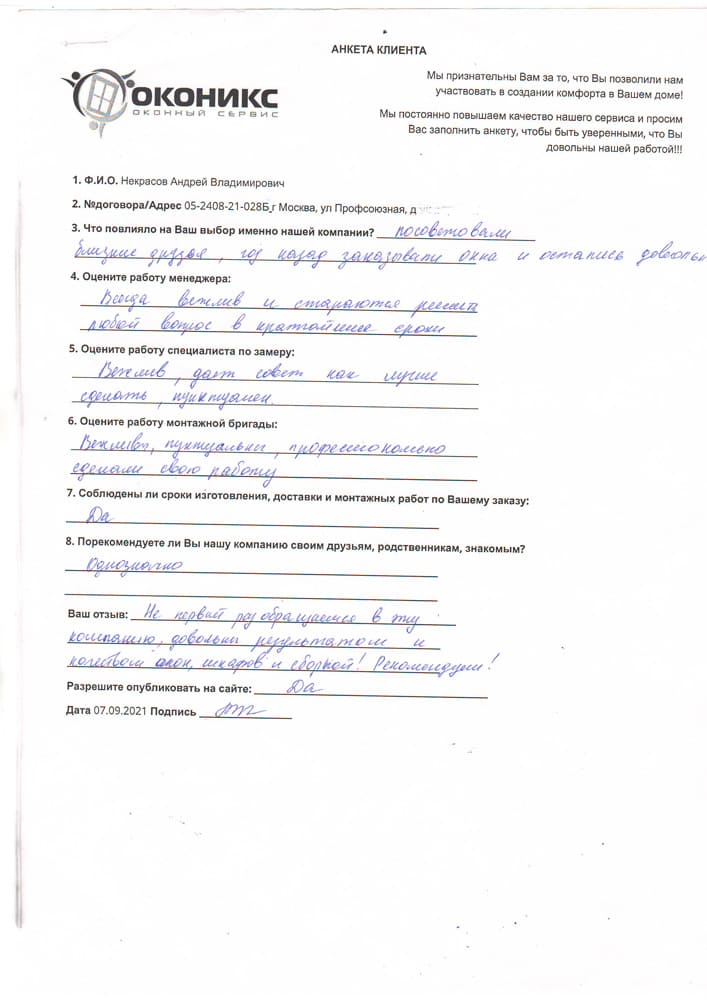 АНКЕТА КЛИЕНТА
ОКОНИКС
ОКОННЫЙ СЕРВИС
Мы признательны Вам за то, что Вы позволили нам
участвовать в создании комфорта в Вашем доме!
Мы постоянно повышаем качество нашего сервиса и просим
Вас заполнить анкету, чтобы быть уверенными, что Вы
довольны нашей работой!!!
1. Ф.И.О. Некрасов Андрей Владимирович
2. №договора/Адрес 05-2408-21-028Б г Москва, ул Профсоюзная, д
3. Что повлияло на Ваш выбор именно нашей компании? посоветовали
близкие друзья, год назад заказывали окна и остались довольн
4. Оцените работу менеджера:
Всегда вежлив и стараются решить
любой вопрос в кратчайшие сроки
5. Оцените работу специалиста по замеру:
Вежлив, дает совет как лучше
сделать, пунктуален.
6. Оцените работу монтажной бригады:
Вежливы, пунктуальны, профессионально
сделали свою работу
7. Соблюдены ли сроки изготовления, доставки и монтажных работ по Вашему заказу:
Да
8. Порекомендуете ли Вы нашу компанию своим друзьям, родственникам, знакомым?
Однозначно
Ваш отзыв: Не первый раз обращаемся в эту
компанию, довольны результатом и
качеством окон, шкафов и сборкой! Рекомендуем!
Разрешите опубликовать на сайте: Да
Дата 07.09.2021 Подпись